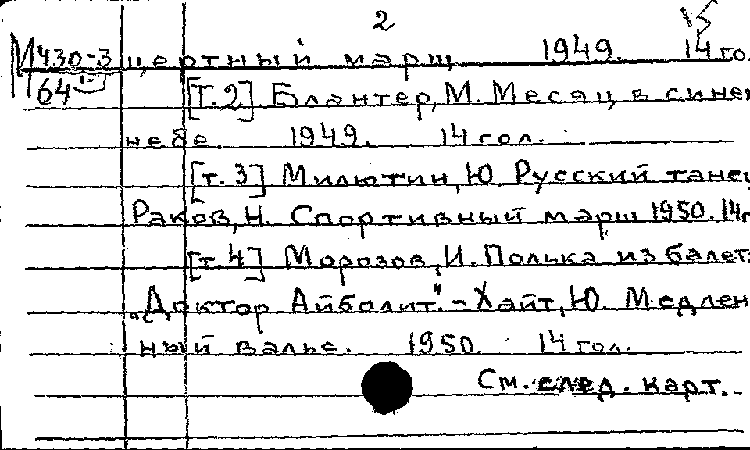 2 15
М430-3 цертный марш 1949. 14 го
64 [Т.2] Блантер, М. Месяц в сине
небе. 1949. 14 гол.
[т.3] Милютин, Ю Русский танец
Раков, Н. Спортивный марш 1950. 14г
[т.4] Морозов, И. Полька из балет
"Доктор Айболит". - Хайт, Ю. Медлен
ный вальс. 1950. 14 гол.
См. след. карт.